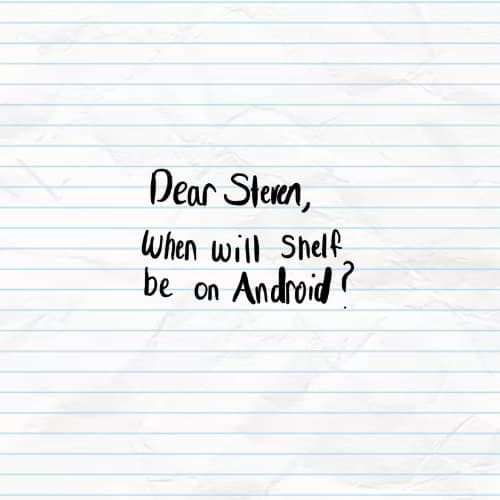 Dear Steven,
When will Shelf
be on Android?